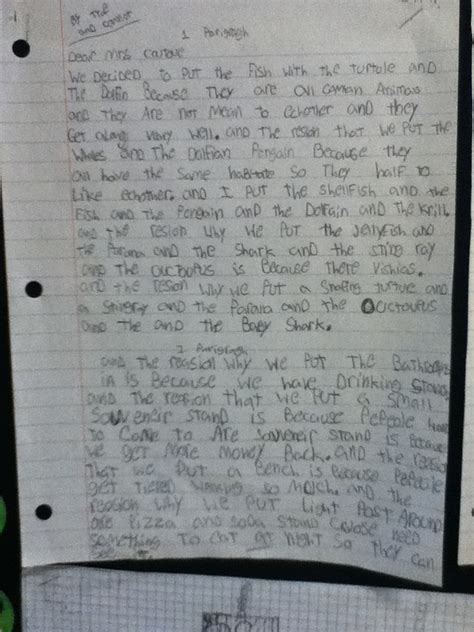 By Troy
and Connor
1 Parigragh
Dear Mrs
We Decided to Put the Fish with the turtole and
The Dolfin Because They are all Caman Animas
and They Are not Mean to echother and they
Get along very well. and The resion that we Put the
Whales and The Dolfian Pengain Because they
all have the Same habitate So They half to
Like echother. and I Put the Shellfish and the
Fish and the Pengain and the Dolfain and The Krill.
and the resion Why we Put the Jellyfish and
the Parana and the Shark and the sting ray
and the ouctoupus is Because There vishias.
and the resion Why we Put a Snaping turtule and
a Stingray and the Parana and the Ouctoupus
and the and the Baby Shark.
2 Parigragh
and The reasion why we Put The Bathrooms
in is Because we have Drinking Stands
and the reason that we Put a Small
Souvenir Stand is Because PePeole have
to Come to Are Souvenir stand is Because
we get More money Back. and the reason
That we Put a Bench is Because PePeole
get tiered so Much. and the
reasion why we Put Light Post Around
are Pizza and soda Stand need
something To eat at night So They Can
see